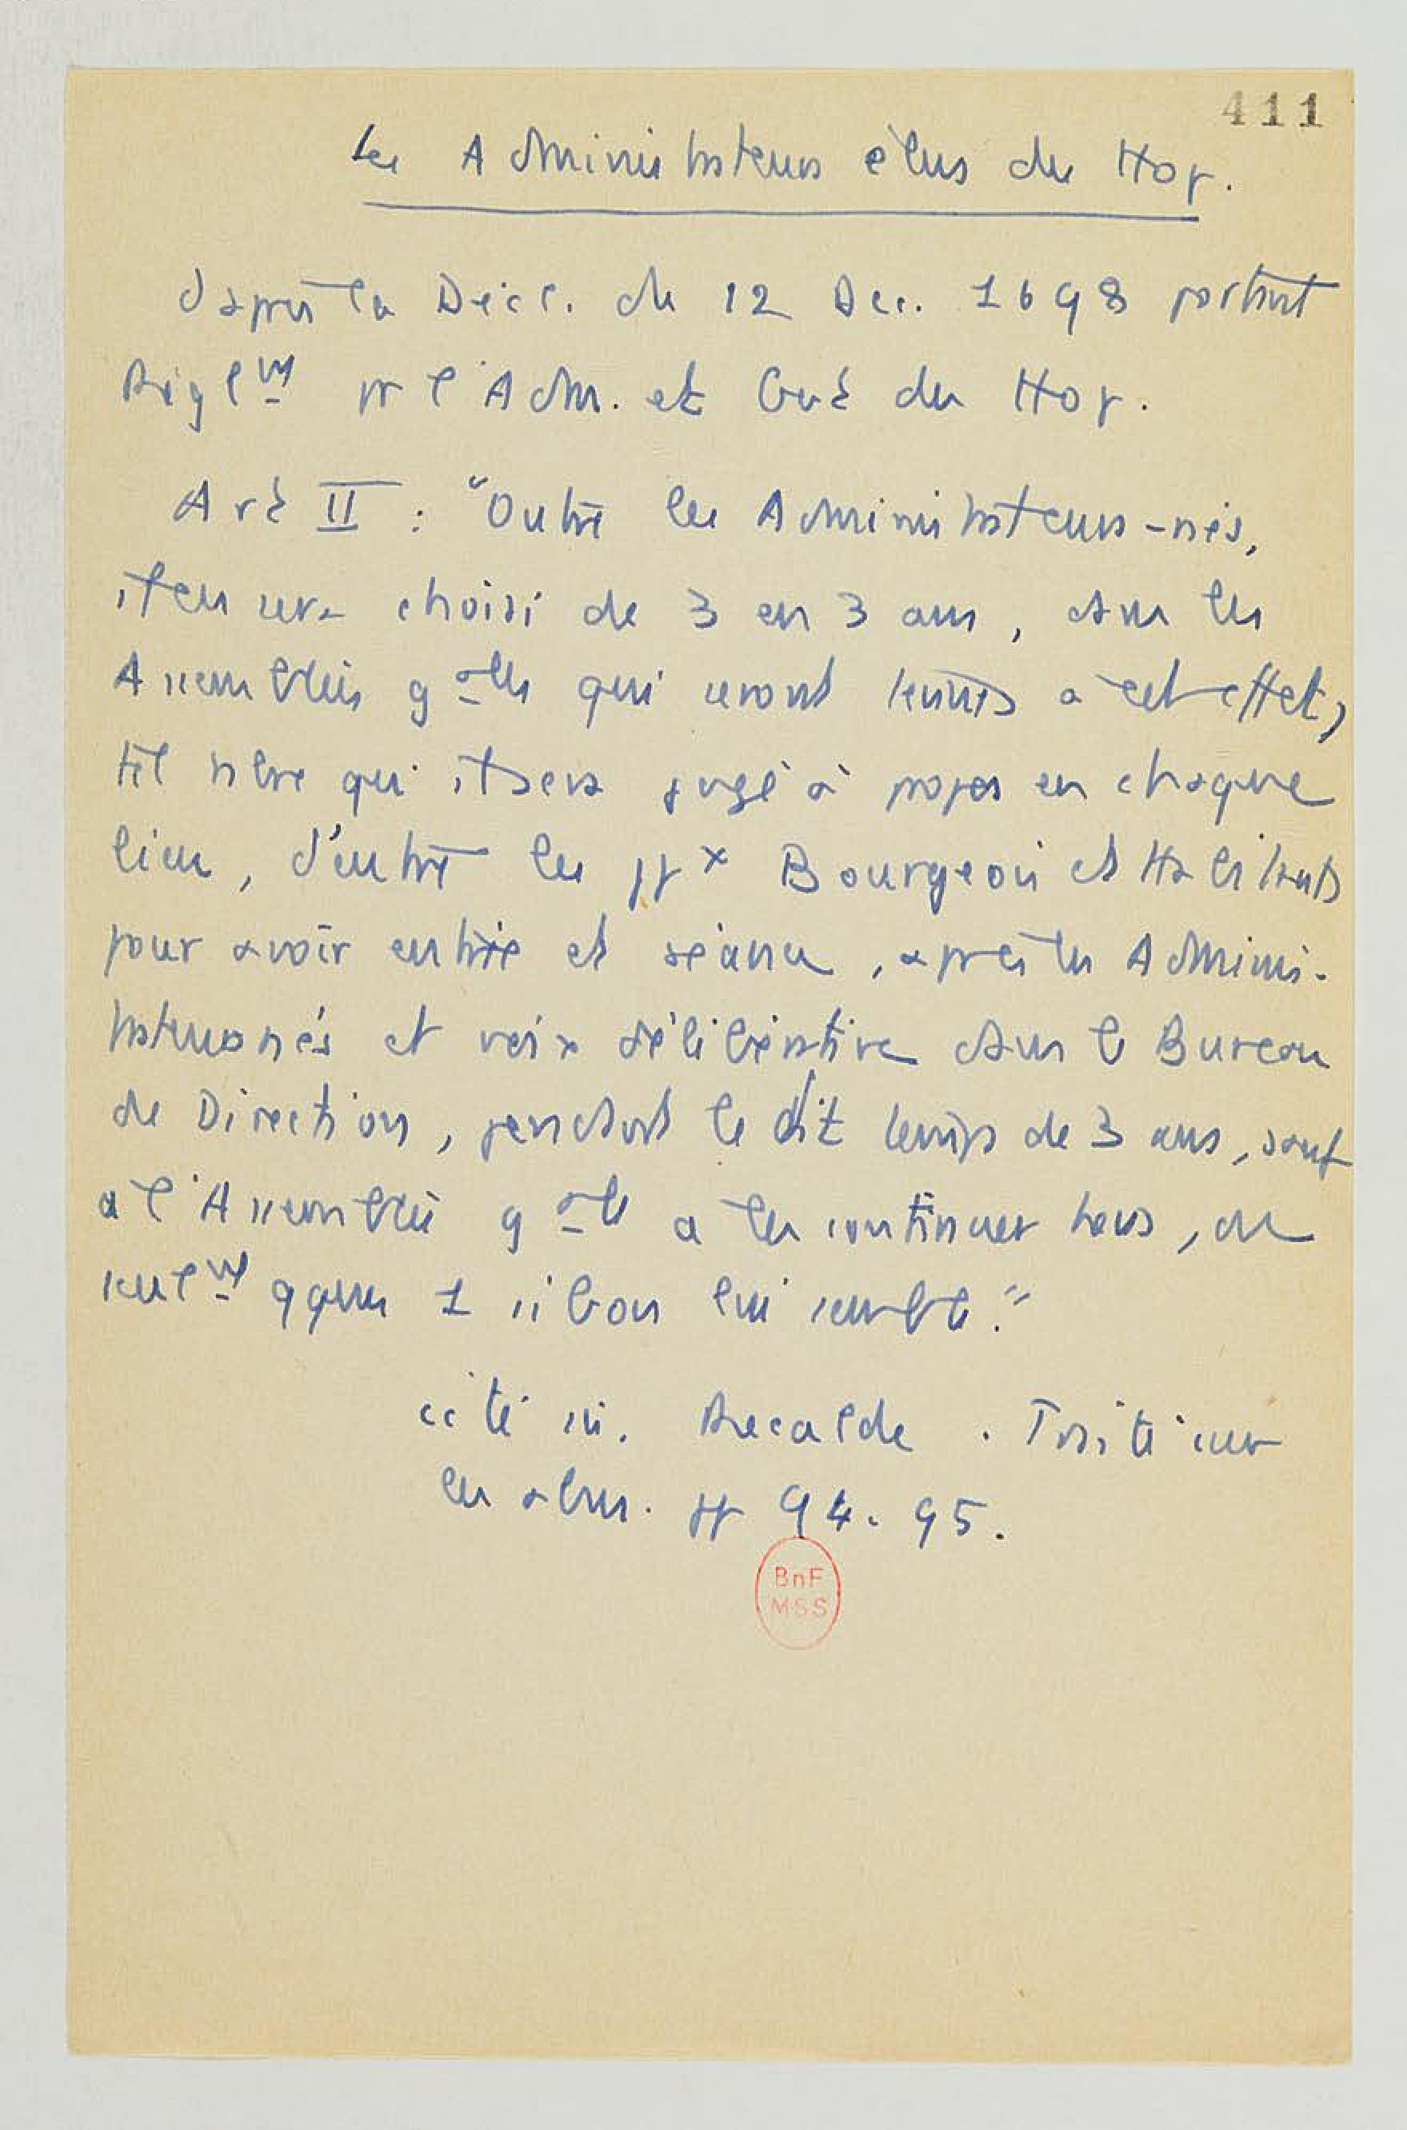 411
Les Administrateurs élus des Hop.
d'après la Décl. du 12 Dec. 1698 portant
Règlmt pr l'Adm. et Gvt des Hop.
Art II : "Outre les Administrateurs-nés,
il en sera choisi de 3 en 3 ans, dans les
Assemblées gales qui seront tenues à cet effet,
tel nbre qui il sera jugé à propos en chaque
lieu, d'entre les ppx Bourgeois et Habitants
pour avoir entrée et séance, après les Adminis-
trateurs nés et voix délibérative dans le Bureau
de Direction, pendant le dit temps de 3 ans, sauf
à l'Assemblée gale à les continuer tous, ou
seulmt qques 1 si bon lui semble."
cité in. Recalde . Traité sur
les abus. pp 94. 95.
BnF
MSS